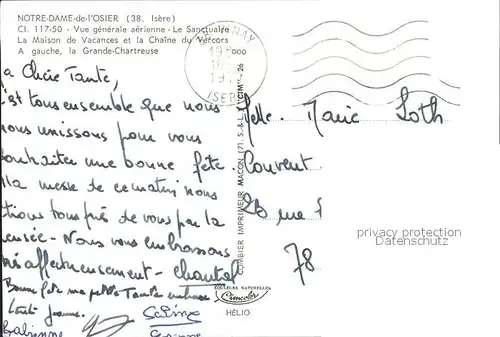 NOTRE-DAME-de-l'OSIER (38. Isère)
Cl. 117-50 - Vue générale aérienne - Le Sanctuaire
La Maison de Vacances et la Chaîne du Vercors
A gauche, la Grande-Chartreuse
ISERE
a Chère Tante,
'est tous ensemble que nous
nous unissons pour vous
souhaiter une bonne fête.
A la messe de ce matin nous
étions tous près de vous par la
pensée - Nous vous embrassons
très affectueusement - Chantal
Bonne fête ma petite Tante
Tante Jeanne.
Fabienne
COMBIER IMPRIMEUR MACON (71. S.-&-L.) "CIM"
COULEURS NATURELLES
Cimcolor
HÉLIO
Melle. Marie Loth
Couvent
rue
78
privacy protection
Datenschutz